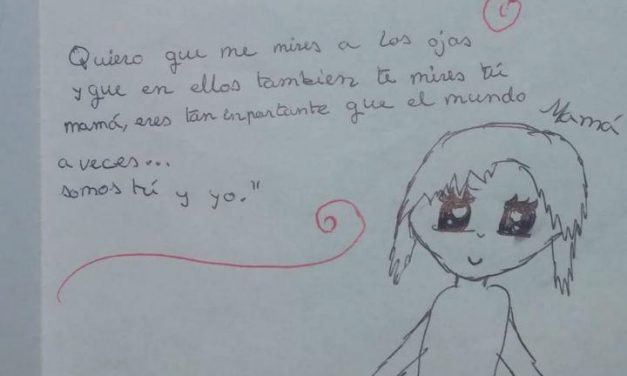 Quiero que me mires a los ojas
y que en ellos tambien te mires tú
mamá, eres tan inportante que el mundo
a veces...
somos tú y yo."
Mamá